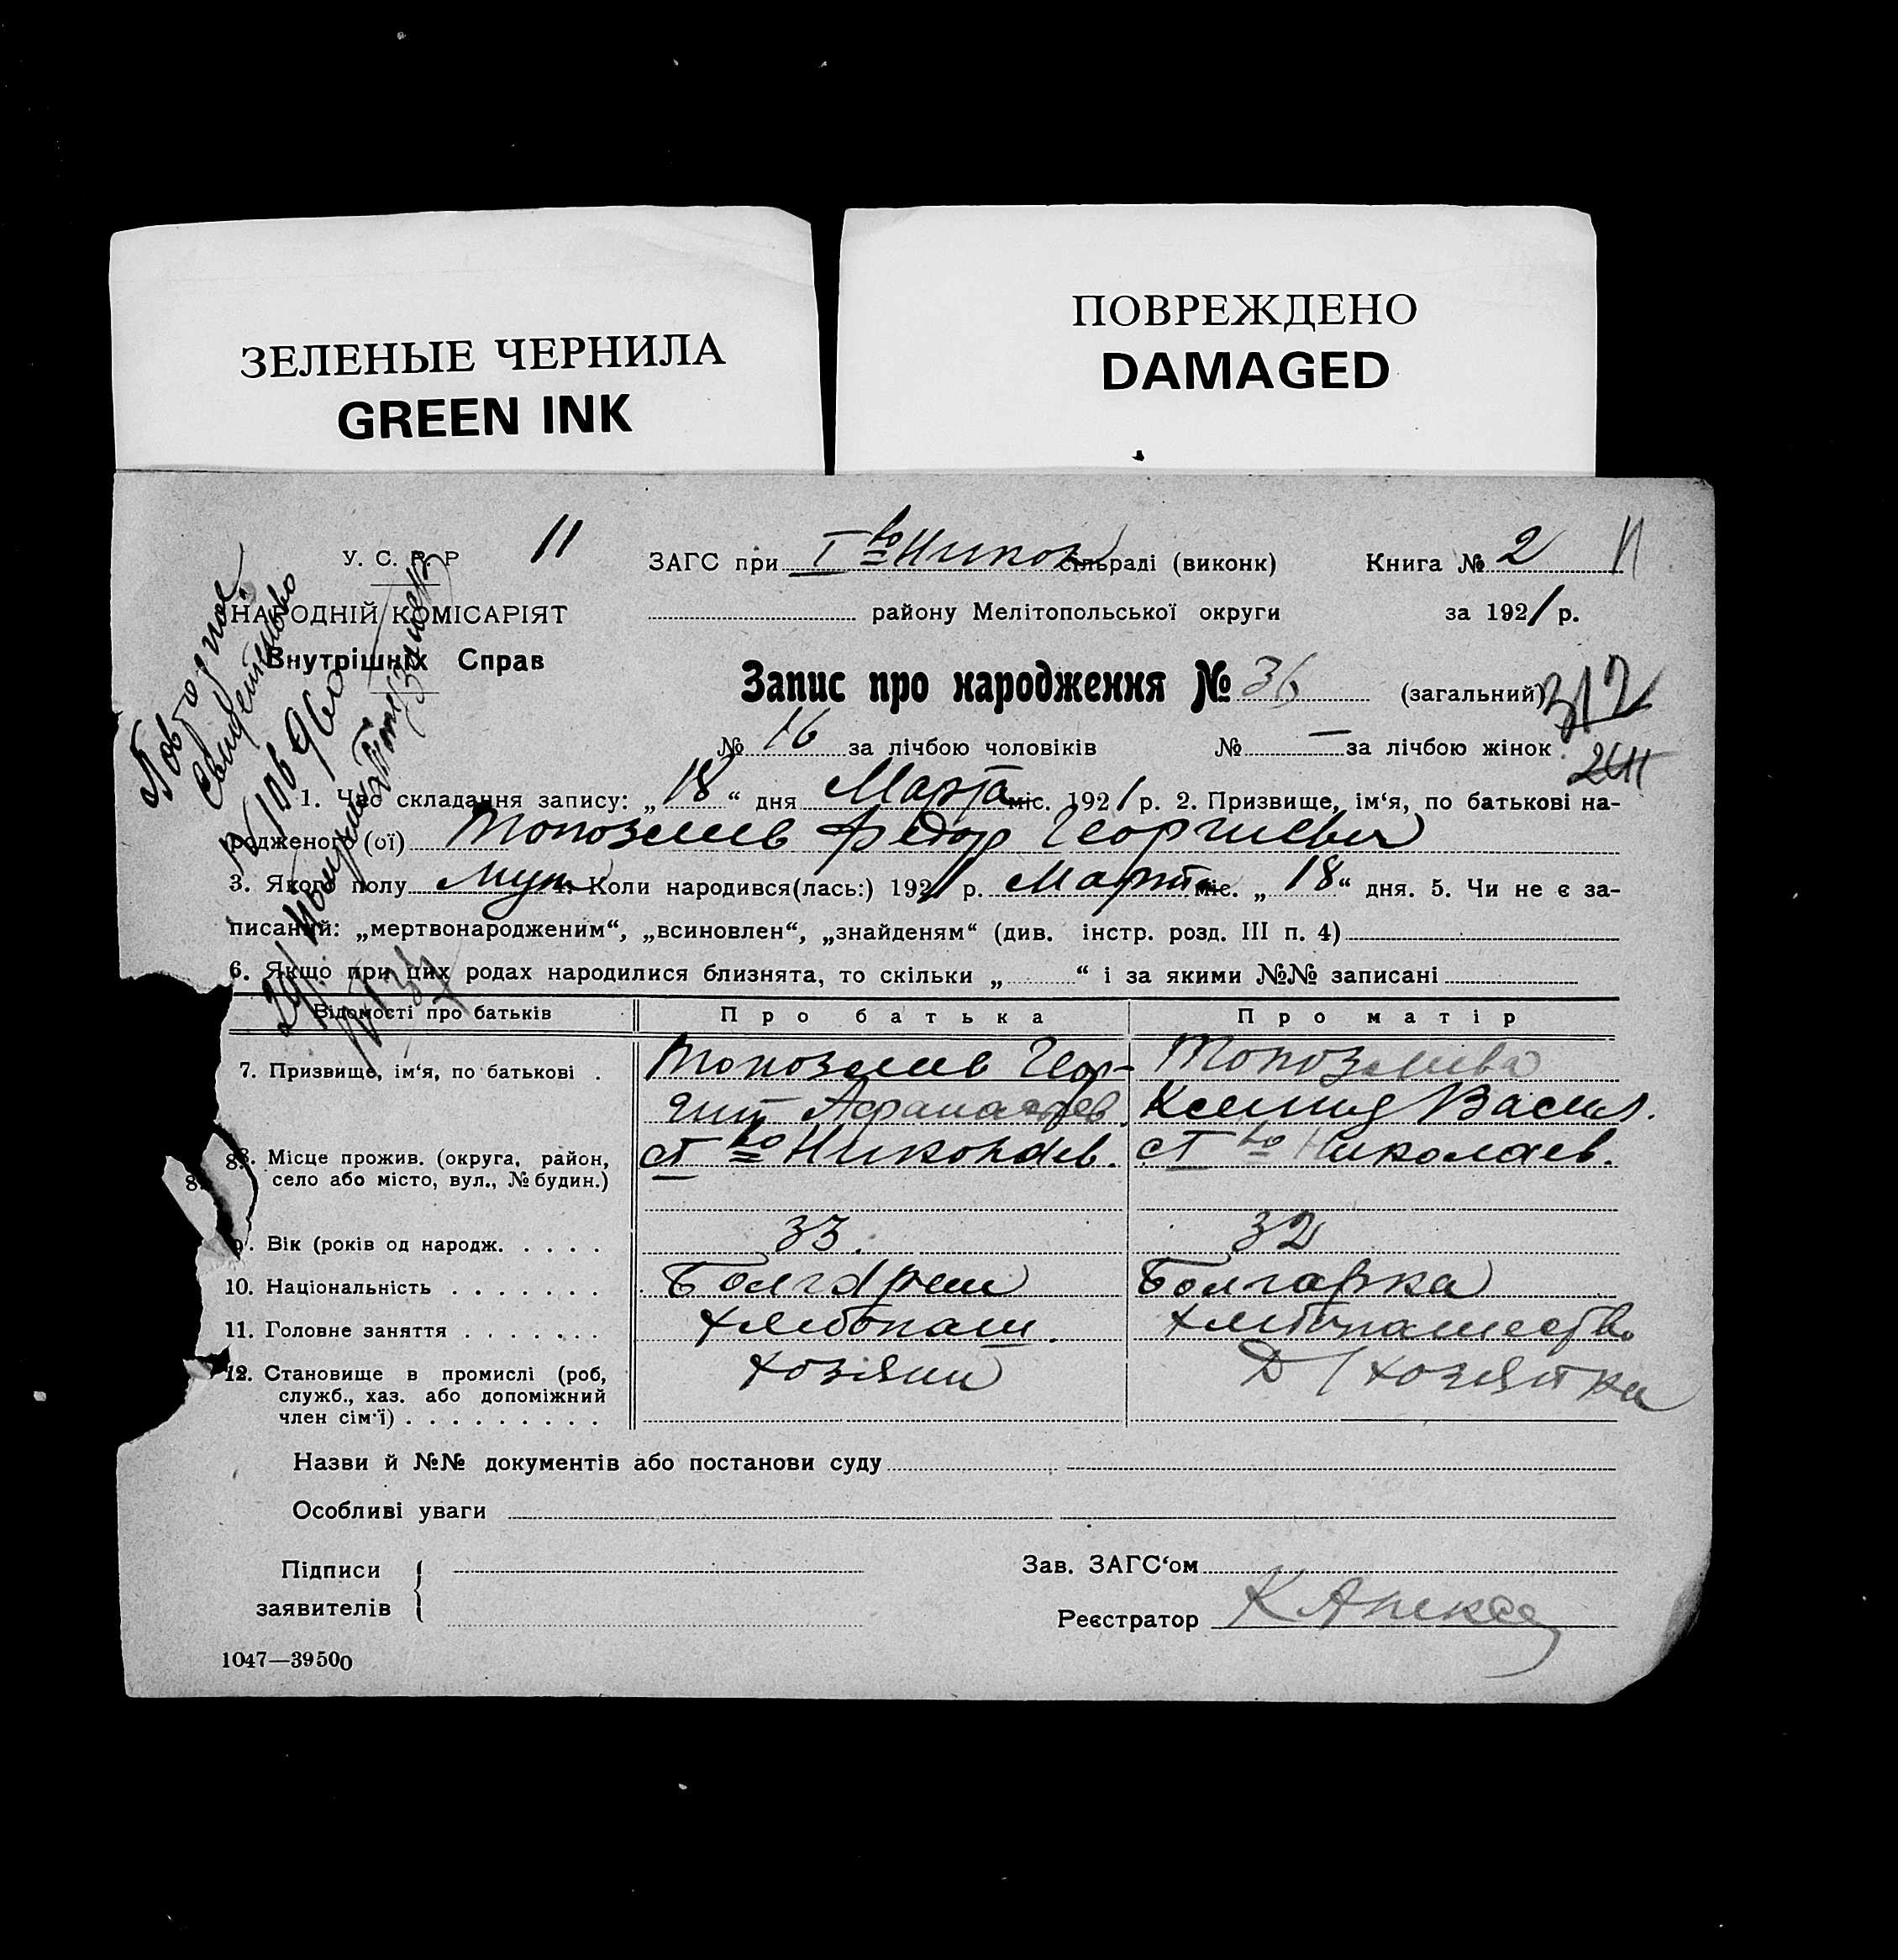 ЗЕЛЕНЫЕ ЧЕРНИЛА
GREEN INK
ПОВРЕЖДЕНО
DAMAGED
У. С. Р. Р
11
ЗАГС при I во Никол сільраді (виконк)
Книга № 2
11
НАРОДНІЙ КОМІСАРІЯТ
району Мелітопольської округи
за 1921 р.
Внутрішніх Справ
Запис про народження № 36 (загальний)
312
№ 16 за лічбою чоловіків № — за лічбою жінок
Повторное
Свидетельство
1. Час складання запису: „18“ дня Марта міс. 1921 р. 2. Призвище, ім‘я, по батькові на-
родженого (ої) Топозлиев Федор Георгиевич
3. Якого полу муж 4. Коли народився(лась:) 1921 р. Марта міс. „18“ дня. 5. Чи не є за-
писаний: „мертвонародженим“, „всиновлен“, „знайденям“ (див. інстр. розд. III п. 4)
6. Якщо при цих родах народилися близнята, то скільки „ “ і за якими №№ записані
Відомості про батьків
Про батька
Про матір
7. Призвище, ім‘я, по батькові .
Топозлиев Геор-
гий Афанасьев.
Топозлиева
Ксения Васил.
8. Місце прожив. (округа, район,
село або місто, вул., № будин.)
с I во Николаев.
с I во Николаев.
9. Вік (років од народж. . . . .
33.
32
10. Національність . . . . . . .
Болгарин
Болгарка
11. Головне заняття . . . . . . .
хлебопаш.
хлебопашество
12. Становище в промислі (роб,
служб., хаз. або допоміжний
член сім‘ї) . . . . . . . . .
хозяин
Д/хозяйка
Назви й №№ документів або постанови суду
Особливі уваги
Підписи
заявителів
Зав. ЗАГС‘ом
Реєстратор
1047—39500